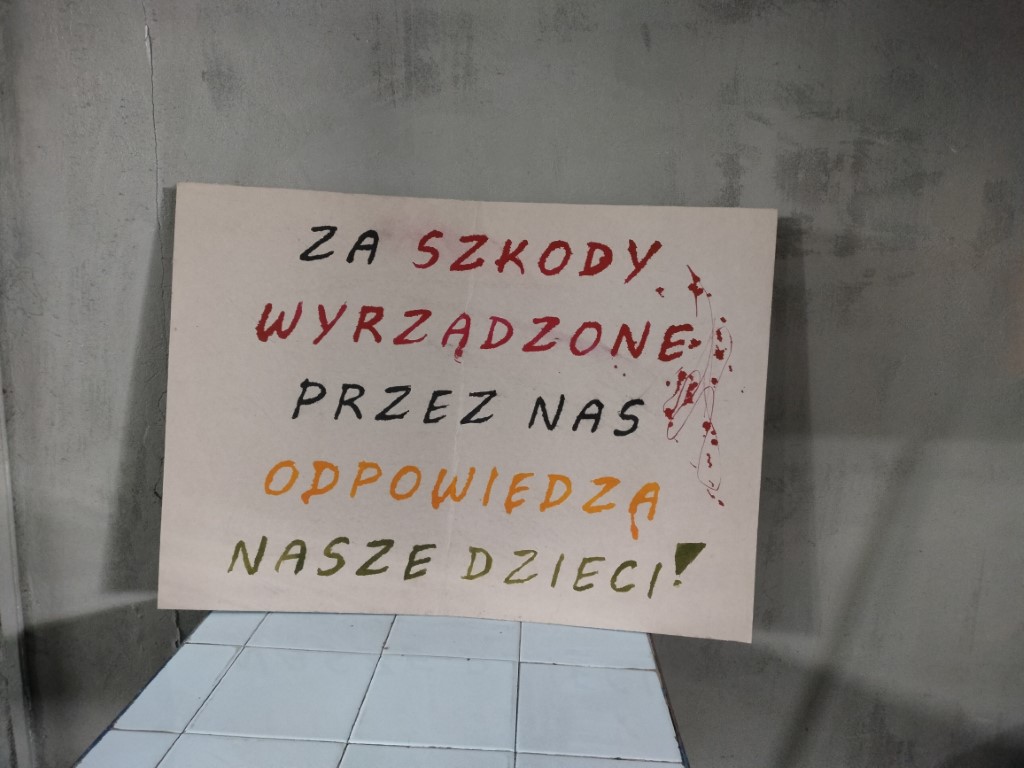 ZA SZKODY
WYRZĄDZONE
PRZEZ NAS
ODPOWIEDZĄ
NASZE DZIECI!